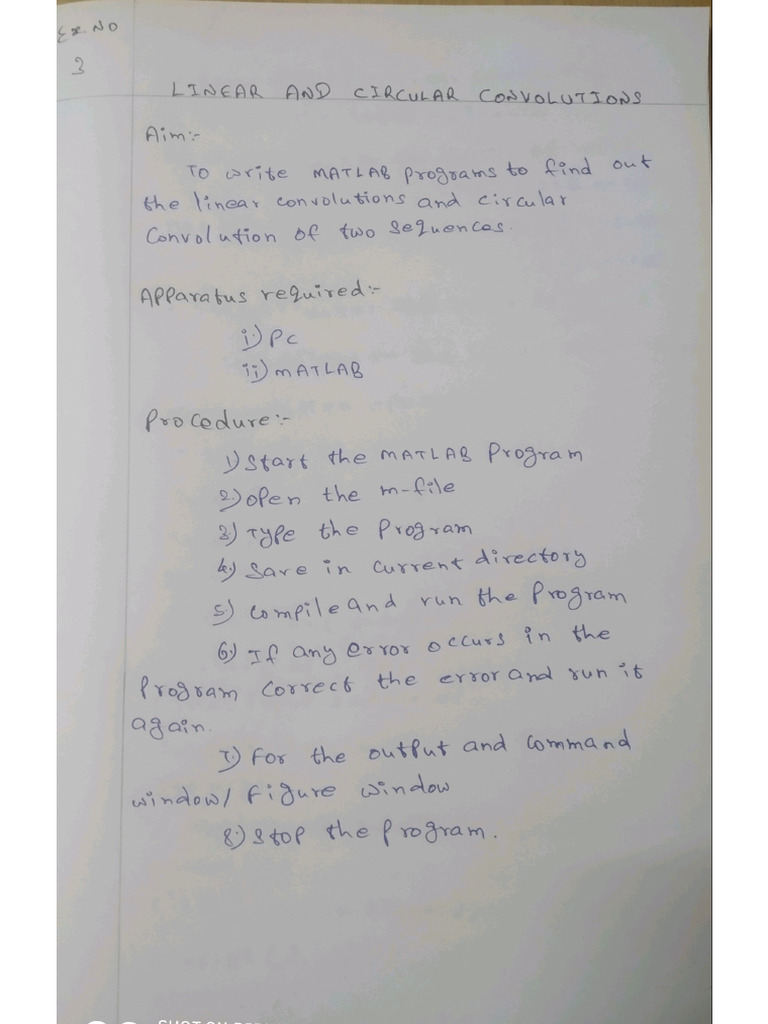 Ex. NO
3
LINEAR AND CIRCULAR CONVOLUTIONS
Aim:-
To write MATLAB programs to find out
the linear convolutions and circular
Convolution of two sequences.
Apparatus required:-
i) PC
ii) MATLAB
Procedure:-
1) Start the MATLAB Program
2.) open the m-file
3) Type the Program
4.) Save in current directory
5.) compile and run the Program
6.) If any error occurs in the
Program correct the error and run it
again.
7.) For the output and command
window/ Figure window
8.) Stop the Program.
SHOT ON